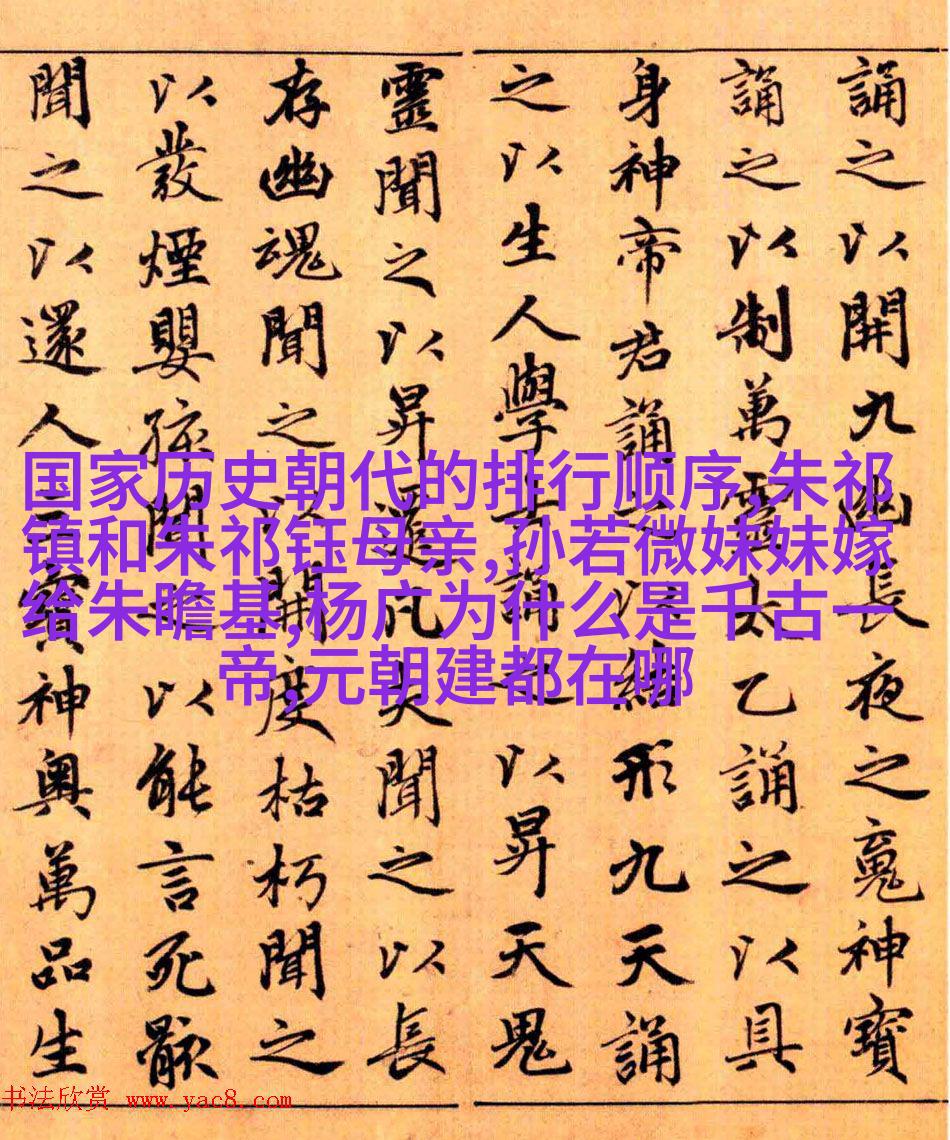 誦之以開九幽長夜之䰟神寶
誦之以制萬靈太乙誦之以具
身神帝君誦之以形九天誦
之以生人學士誦之以昇天鬼
靈聞之以昇還凡夫聞之以長
存幽魂聞之以開度枯朽聞之
以發煙嬰孩聞之以能言死骸
聞之以還人三寶神奥萬品生
国家历史朝代的排行顺序,朱祁
镇和朱祁钰母亲,孙若微妹妹嫁
给朱瞻基,杨广为什么是千古一
帝,元朝建都在哪
书法欣赏 www.yac8.com